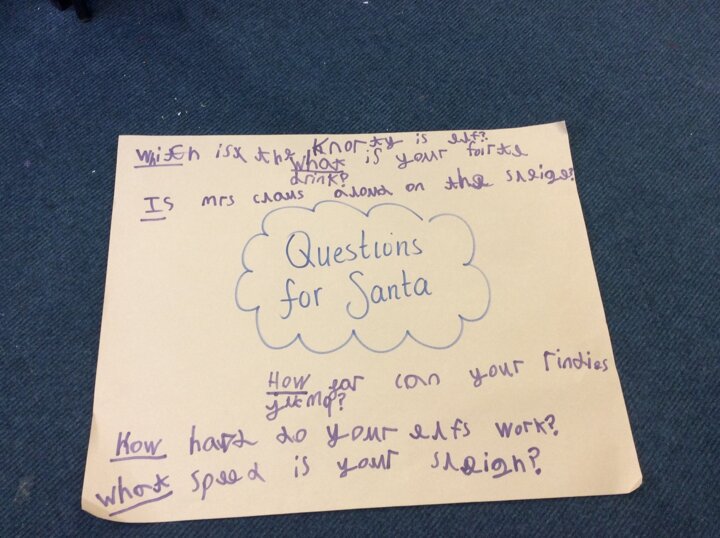 Which is the Knorty is elf?
What is your foirte
drink?
Is mrs claus aloud on the sleige?
Questions
for Santa
How far can your rindies
jump?
How hard do your elfs work?
What speed is your sleigh?